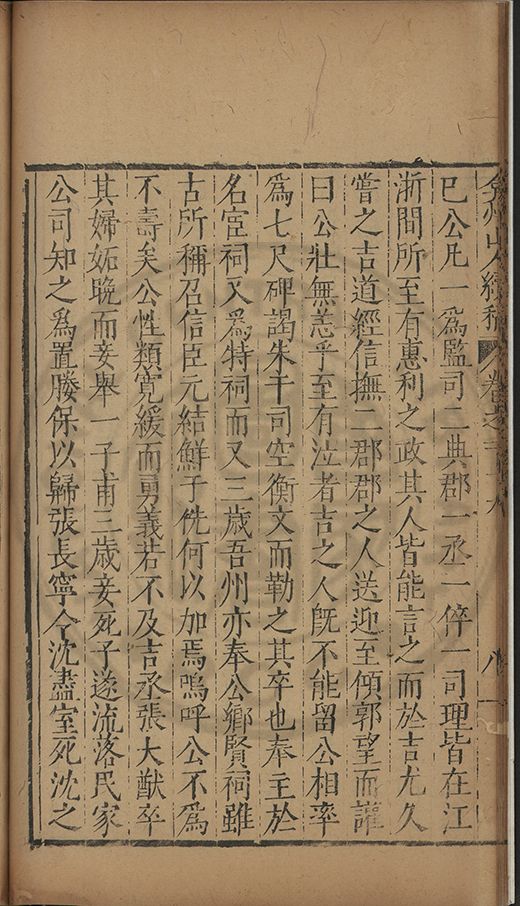 弇州山人續稿 卷之 八
巳公凡一爲監司二典郡一丞一倅一司理皆在江
浙間所至有惠利之政其人皆能言之而於吉尤久
嘗之吉道經信撫二郡郡之人送迎至傾郭望而讙
曰公壯無恙乎至有泣者吉之人旣不能留公相率
爲七尺碑謁朱于司空衡文而勒之其卒也奉主於
名宦祠又爲特祠而又三歲吾州亦奉公鄉賢祠雖
古所稱召信臣元結鮮于侁何以加焉嗚呼公不爲
不壽矣公性類寬緩而勇義若不及吉丞張大猷卒
其婦妬晚而妾舉一子甫三歲妾死子遂流落民家
公司知之爲置媵保以歸張長寧令沈盡室死沈之